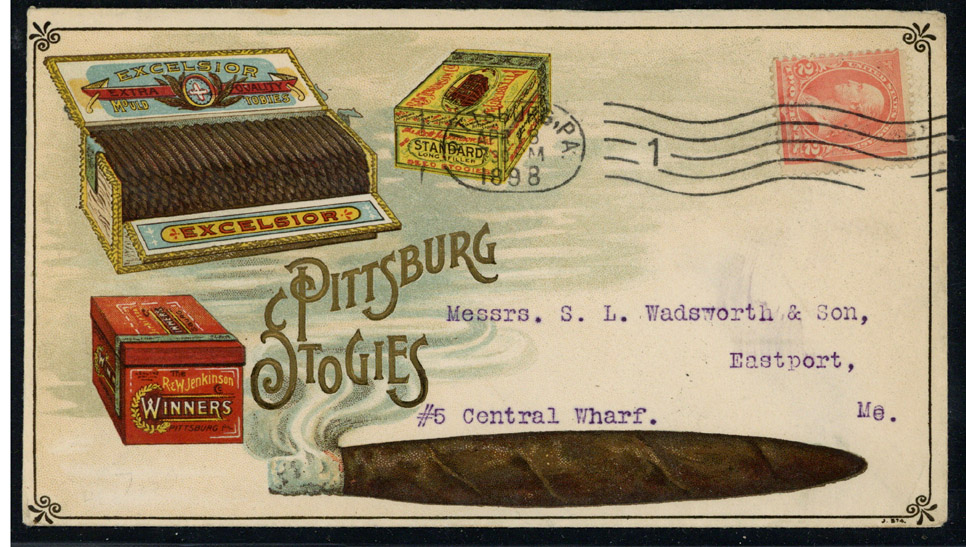 EXCELSIOR
EXTRA QUALITY
MOULD TOBIES
EXCELSIOR
STANDARD
LONG FILLER
SEED STOGIES
PA.
1898
1
2 2
PITTSBURG
STOGIES
The
R&W Jenkinson
Co
WINNERS
PITTSBURG PA.
Messrs. S. L. Wadsworth & Son,
Eastport,
#5 Central Wharf. Me.